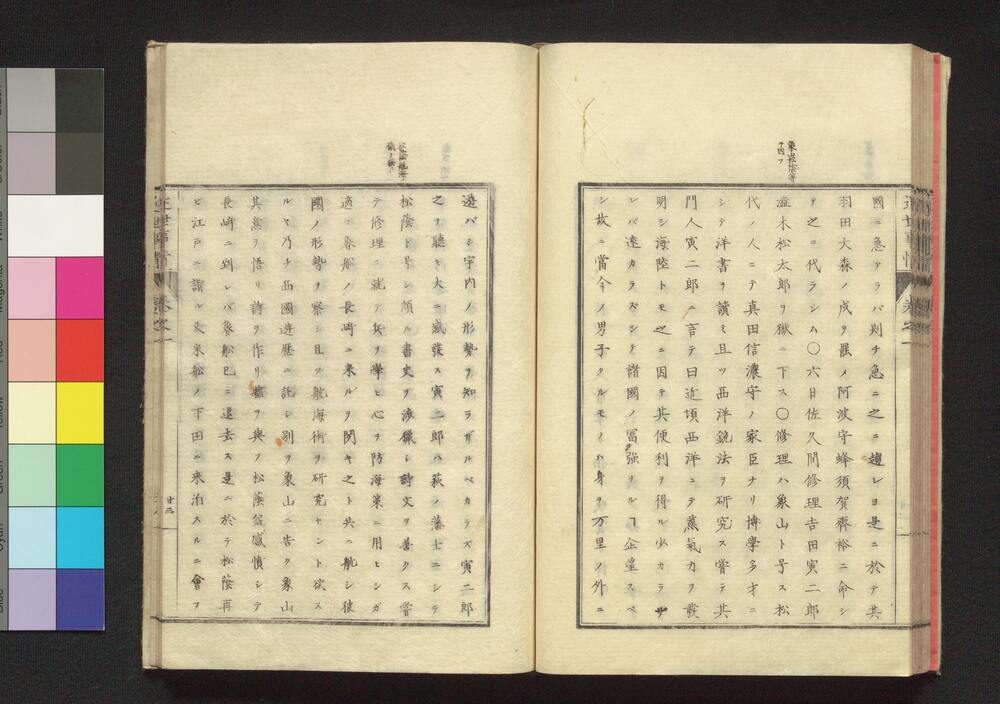 國ニ急アラバ則チ急ニ之ニ趨レヨ是ニ於テ其
羽田大森ノ戍ヲ罷メ阿波守蜂須賀齊裕ニ命シ
テ之ニ代ラシム〇六日佐久間修理吉田寅二郎
澁木松太郎ヲ獄ニ下ス〇修理ハ象山ト号ス松
代ノ人ニテ真田信濃守ノ家臣ナリ博學多才ニ
シテ洋書ヲ讀ミ且ツ西洋銃法ヲ研究ス嘗テ其
門人寅二郎ニ言テ曰近頃西洋ニテ蒸氣力ヲ發
明シ海陸トモ之ニ因テ其便利ヲ得ル少カラザ
レバ遠カラズシテ諸國ノ冨強ヲルヿ企望スベ
シ故ニ當今ノ男子タルモノハ身ヲ万里ノ外ニ
遊バシ宇内ノ形勢ヲ知ラザルベカラズ寅二郎
之ヲ聽キ大ニ感發ス寅二郎ハ萩ノ藩士ニシテ
松蔭ト号シ頗ル書史ヲ渉獵シ詩文ヲ善クス嘗
テ修理ニ就テ兵ヲ學ヒ心ヲ防海策ニ用ヒシガ
適〻魯船ノ長崎ニ来ルヲ聞キ之ト共ニ航シ彼
國ノ形勢ヲ察シ且ツ航海術ヲ研究セント欲ス
ルヤ乃チ西國遊歴ニ託シ別ヲ象山ニ告ク象山
其意ヲ悟リ詩ヲ作リ
ヲ與フ松蔭益感憤シテ
長崎ニ到レバ魯船已ニ退去ス是ニ於テ松蔭再
ヒ江戸ニ謂ル
米船ノ下田ニ来泊スルニ會フ
象山松陰等
廿三